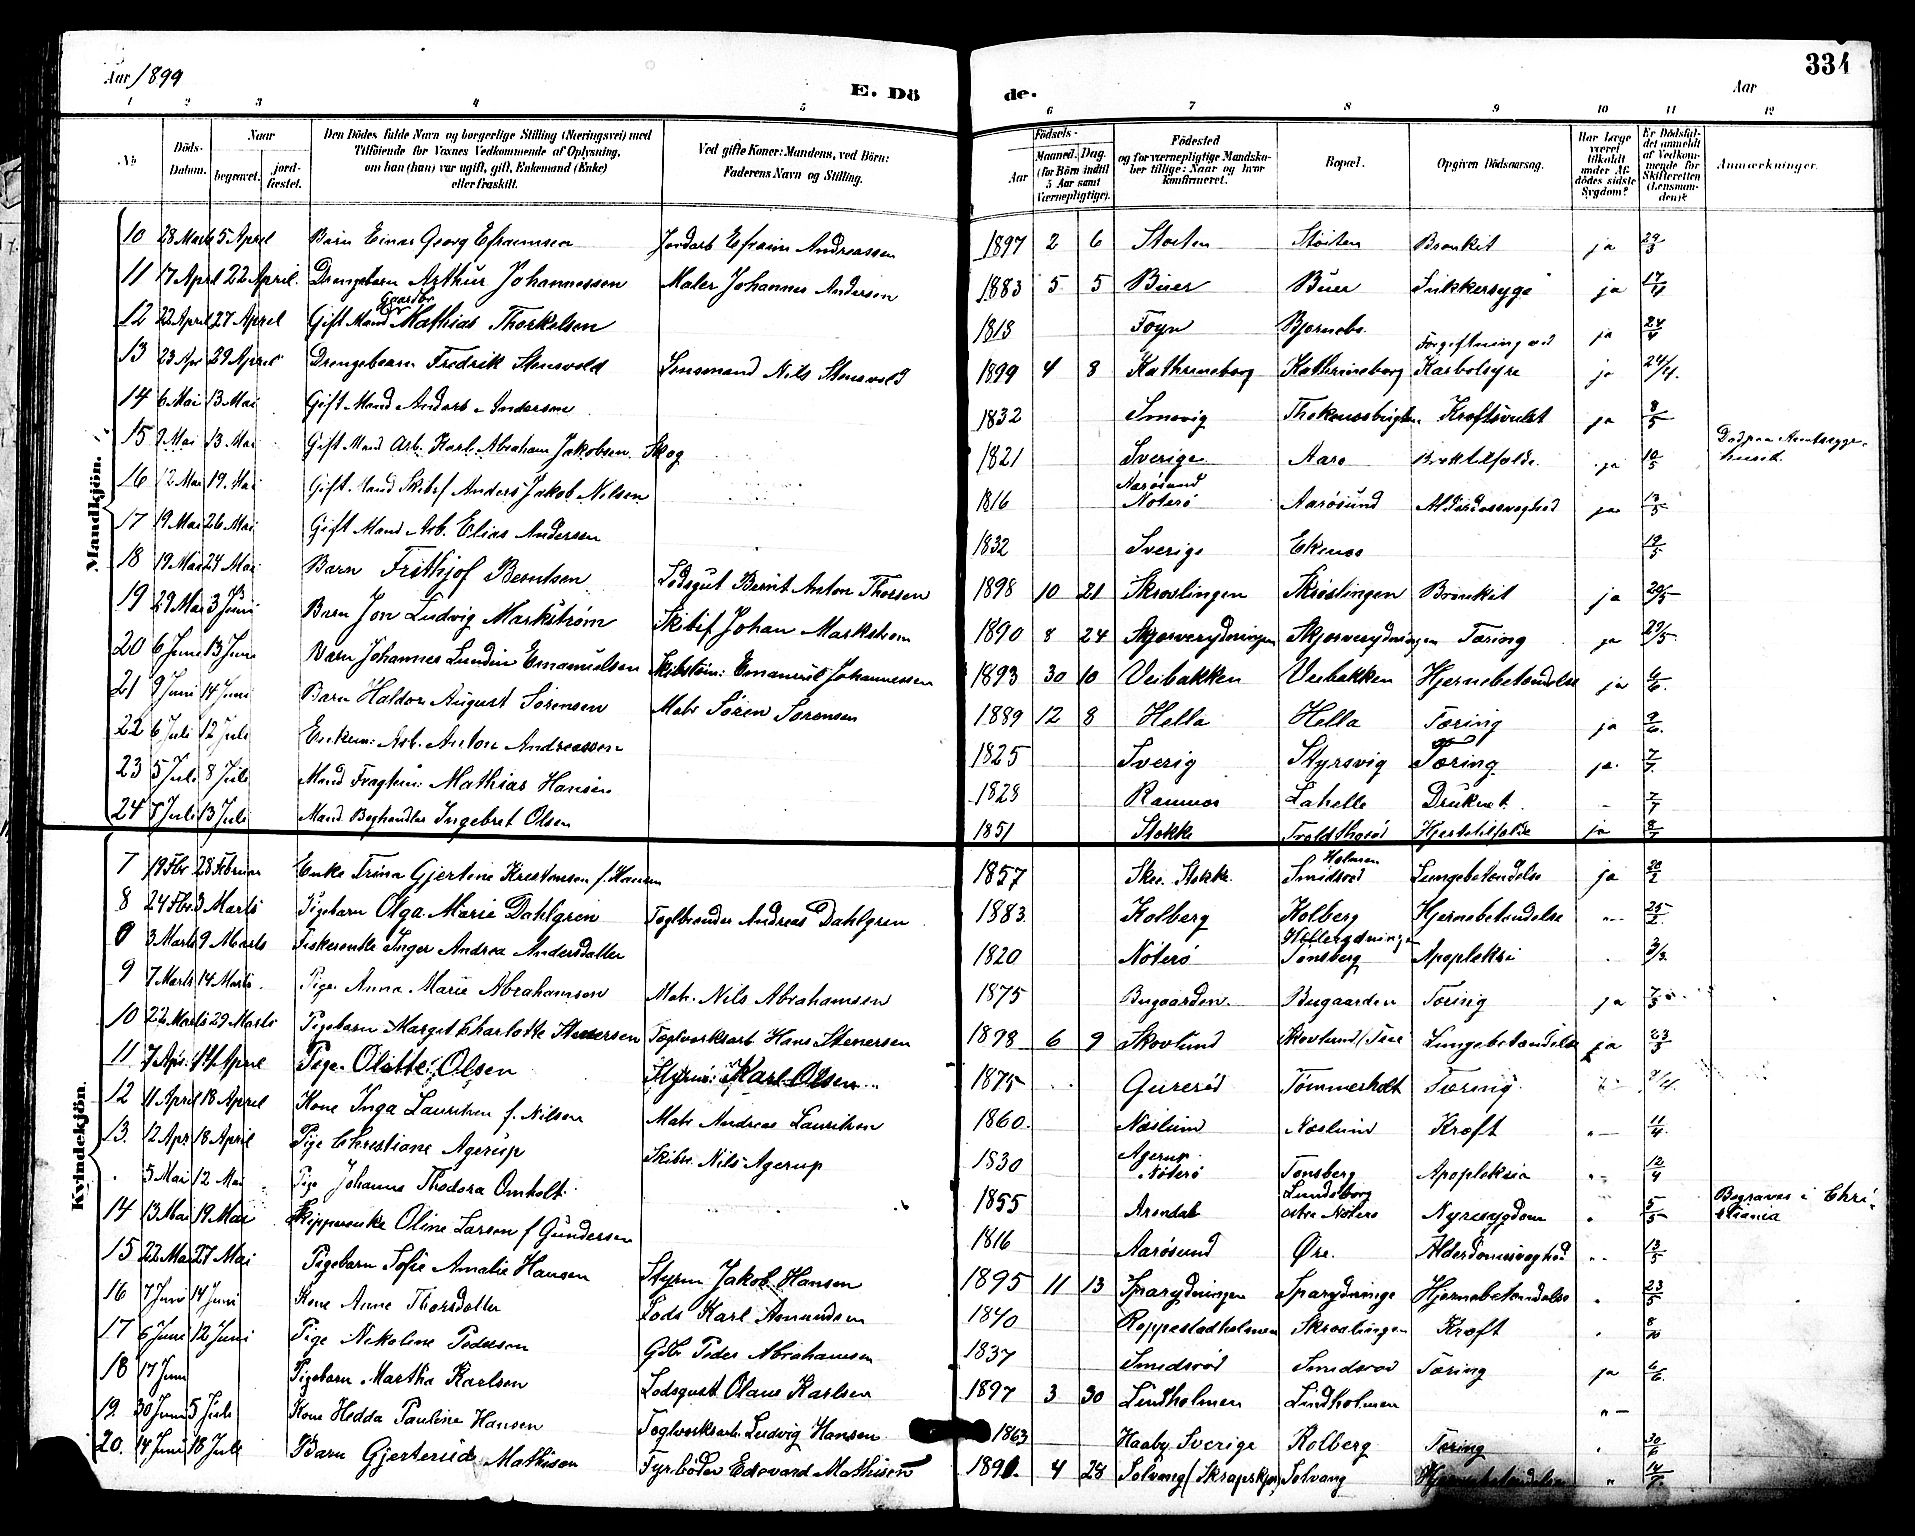 Aar 1899
E. Dö de.
Aar
334
1 2 3 4 5 6 7 8 9 10 11 12
No
Döds-Datum.
Naar begravet. jordfæstet.
Den Dödes fulde Navn og borgerlige Stilling (Næringsvei) med Tilföiende for Voxnes Vedkommende af Oplysning, om han (hun) var ugift, gift, Enkemand (Enke) eller fraskilt.
Ved gifte Koner: Mandens, ved Börn: Faderens Navn og Stilling.
Födsels-
Aar Maaned. Dag. (for Börn indtil 5 Aar samt Værnepligtige).
Födested og for værnepligtige Mandskaber tillige: Naar og hvor konfirmeret.
Bopæl.
Opgiven Dödsaarsag.
Har Læge været tilkaldt under Afdödes sidste Sygdom?
Er Dödsfaldet anmeldt af Vedkommende for Skifteretten (Lensmanden)?
Anmærkninger.
Mandkjön.
10 28 Marts 5 April Barn Einar Georg Efraimsen Jordarb Efraim Andreassen 1897 2 6 Stoiten Stöiten Bronkit ja 29/3
11 17 April 22 April. Drengebarn Arthur Johannessen Maler Johannes Andersen 1883 5 5 Buer Buer Sukkersyge ja 17/4
12 22 April 27 April Gift Mand Gaardbr Mathias Thorkelsen 1818 Foyn Bjornebo ja 24/4
13 23 Apr 29 April Drengebarn Fredrik Stensvold Lensmand Nils Stensvold 1899 4 8 Kathrineborg Kathrineborg Forgiftning ved Karbolsyre ja 24/4.
14 6 Mai 13 Mai Gift Mand Andersen 1832 Smevig Kræftsvulst ja 8/5
15 9 Mai 13. Mai Gift Mand Arb. Karl Abraham Jakobsen Skog 1821 Sverige Aaro ja 10/5 Död paa Amtssygehuset.
16 12 Mai 19. Mai Gift Mand Skibsf Anders Jakob Nilsen 1816 Aarösund Noterö Aarösund Alderdomssvaghed ja 13/5
17 19 Mai 26 Mai Gift Mand Arb. Elias Andersen 1832 Sverige Ekenes 19/5
18 19 Mai 24 Mai Barn Frithjof Berntsen Lodsgut Bernt Anton Thorsen 1898 10 21 Skrovlingen Skröslingen Bronkit ja 20/5
19 29 Mai 3 Juni Barn Jon Ludvig Markström Skibsf Johan Markstrom 1890 8 24 Skjorverydningen Skjorverydningen Tæring ja 29/5
20 6 Juni 13 Juni Barn Johannes Lundin Emanuelsen Skibstöm: Emanuel Johannessen 1893 30 10 Veibakken Veibakken Hjernebetændelse ja 6/6.
21 9 Juni 14 Juni Barn Haldor August Sörensen Matr Sören Sorensen 1889 12 8 Hella Hella Tæring ja 9/6.
22 6 Juli 12 Juli Enkem: Arb. Anton Andreassen 1825 Sverig Styrsvig Tæring ja 7/7.
23 5 Juli 8 Juli Mand Fragtem: Mathias Hansen 1828 Ramnes Lahelle Druknet. - 7/7
24 7 Juli 13 Juli Mand Beghandler Ingebret Olsen 1851 Stokke Hjertetilfælde ja 8/7
Kvindekjön.
7 19 Fbr 28 Februar Enke Trina Gjertine Kristensen f. Hansen 1857 Stokke Holmen Smidsröd Lungebetændelse ja 20/2
8 24 Fbr 3 Marts Pigebarn Olga Marie Dahlgren Teglbrænder Andreas Dahlgren 1883. Kolberg Kolberg Hjernebetændelse 25/2.
3 Marts 9 Marts Fiskerenke Inger Andrea Andersdatter 1820 Nöterö Tönsberg Apopleksi 3/3.
9 7 Marts 14 Marts Pige. Anna Marie Abrahamsen Matr. Nils Abrahamsen 1875 Bugaarden Bugaarden Tæring ja
10 22 Marts 29 Marts Pigebarn Margit Charlotte Stenersen Teglverksarb Hans Stenersen 1898 6 9 Skovlund Skovlund Lungebetændelse ja 23/3
11. 7 Apr. 14 April Pige. Olette Olsen Styrm: Karl Olsen 1875 Gureröd Tömmerholt Tæring. 9/4.
12 11 April 18 April Kone Inga Lauritsen f. Nilsen Matr Andreas Lauritsen 1860. Næslund Næslund Kræft 11/4.
13. 12 Apr 18 April Pige Christiane Agerup Skibsr. Nils Agerup 1830 Agerup Nöterö Tönsberg Apopleksia 12/4
5 Mai 12 Mai Pige Johanne Thodora Omholt 1855 Arendal Lundeborg Nöterö Nyresygdom 5/5 Begraves i Christiania
14 13 Mai 19 Mai Skipperenke Oline Larsen f Gundersen 1816 Aarösund Öre. Alderdomssvaghed 13/5
15 22 Mai 27 Mai Pigebarn Sofie Amalie Hansen Styrm Jakob Hansen 1895 11 13 Sparydningen Sparydninge Hjernebetændelse 23/5
16 7 Juni 14 Juni Kone Anne Thorsdatter Lods Karl Amundsen 1840 Roppestadholmen Skrovlingen Kræft
17 6 Juni 12 Juni Pige Nikoline Pedersen Gdbr Peder Abrahamsen 1837 Smidsröd Smidsröd Tæring ja 6/6.
18 17 Juni Pigebarn Martha Karlsen Lodsgut Olaus Karlsen 1897 3 30 Lindholmen Lindholmen
19. 30 Juni 5 Juli Kone Hedda Pauline Hansen Teglverksarb. Ludvig Hansen 1863 Haaby Sverige Kolberg Tæring 30/6
20. 14 Juni 18 Juli Barn Gjertrud Mathisen Fyrböder Edevard Mathisen 1890. 4 28 Solvang Solvang Hjernebetændelse